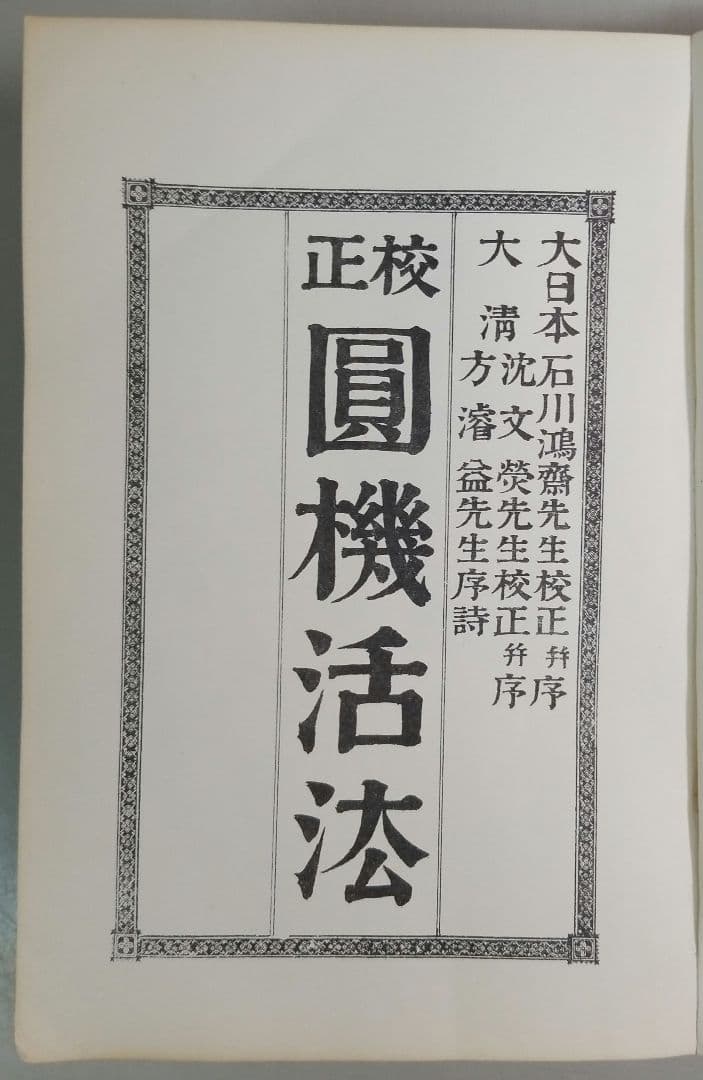 大日本石川鴻齋先生校正幷序
大清沈文熒先生校正幷序
方濬益先生序詩
校正
圓機活法